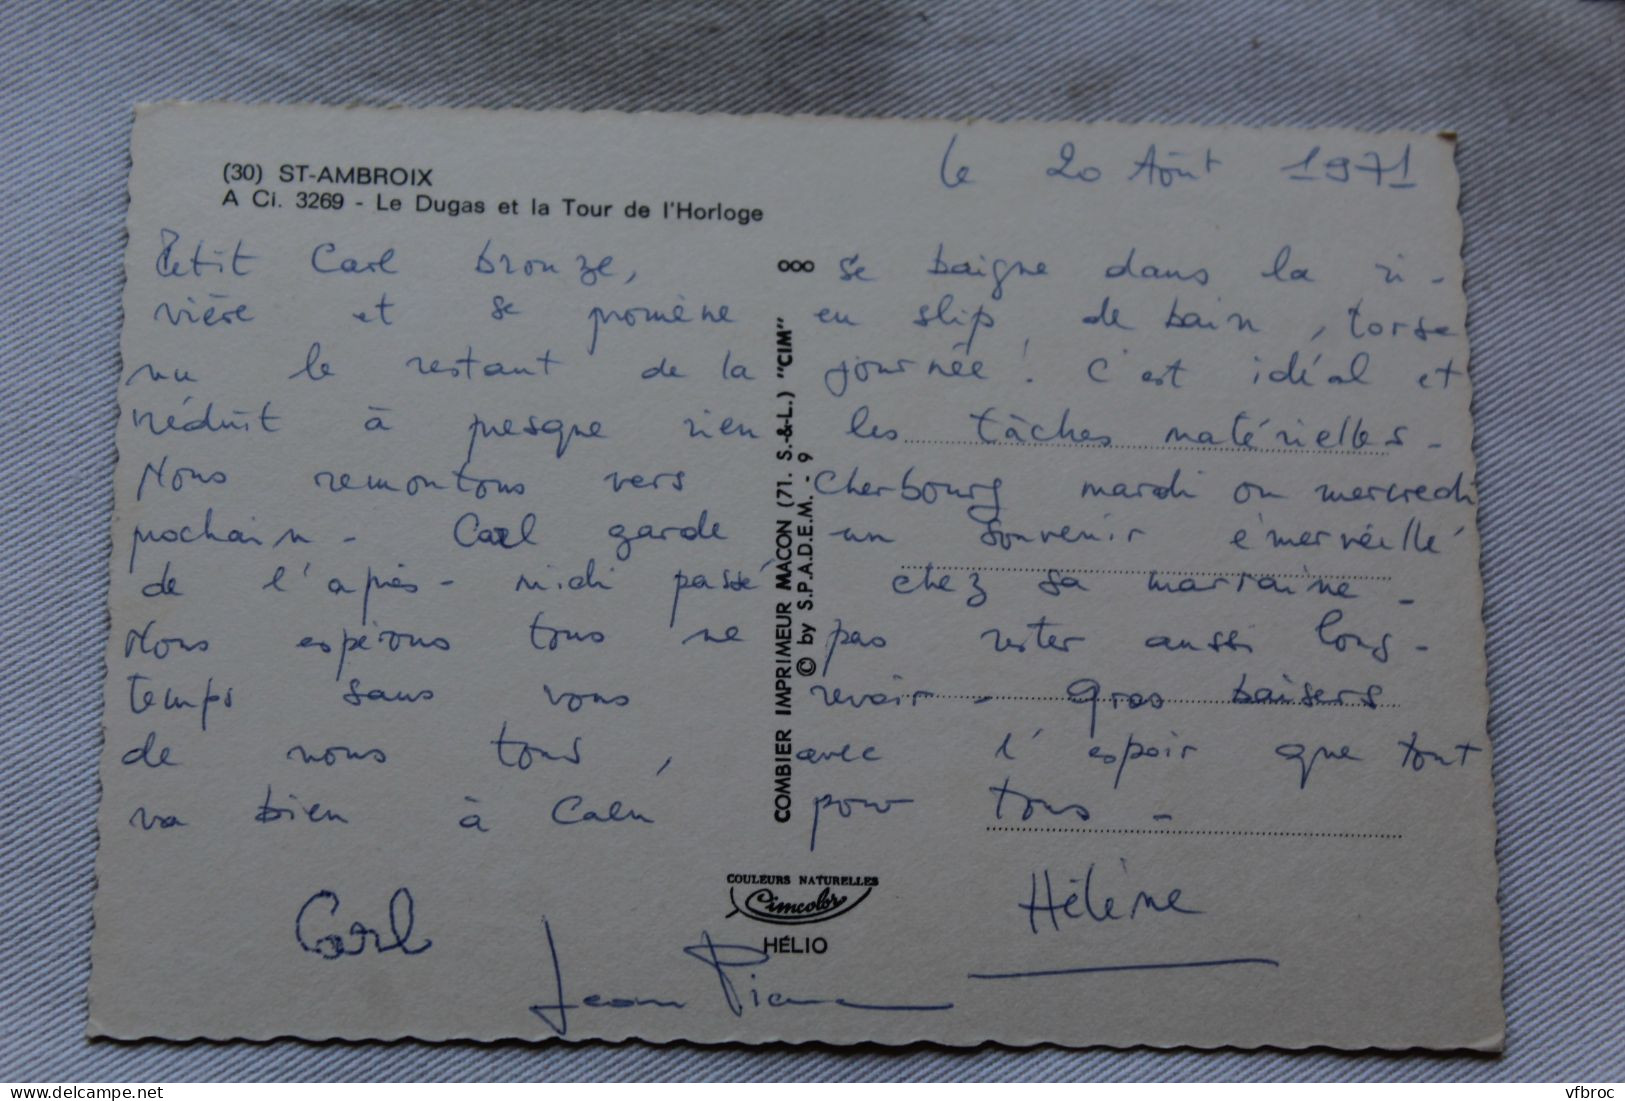 (30) ST-AMBROIX
A Ci. 3269 - Le Dugas et la Tour de l'Horloge
le 20 Août 1971
Petit Carl bronze, se baigne dans la ri-
vière et se promène en slip de bain, torse
nu le restant de la journée! C'est idéal et
réduit à presque rien les tâches matérielles.
Nous remontons vers Cherbourg mardi ou mercredi
prochain. Carl garde un souvenir émerveillé
de l'après-midi passé chez sa marraine.
Nous espérons tous ne pas rester aussi long-
temps sans vous revoir. Gros baisers
de nous tous, avec l'espoir que tout
va bien à Caen pour tous.
Carl
Jean Pierre
Hélène
COMBIER IMPRIMEUR MACON (71. S.-&-L.) "CIM"
© by S.P.A.D.E.M. - 9
COULEURS NATURELLES
Cimcolor
HÉLIO
vfbroc